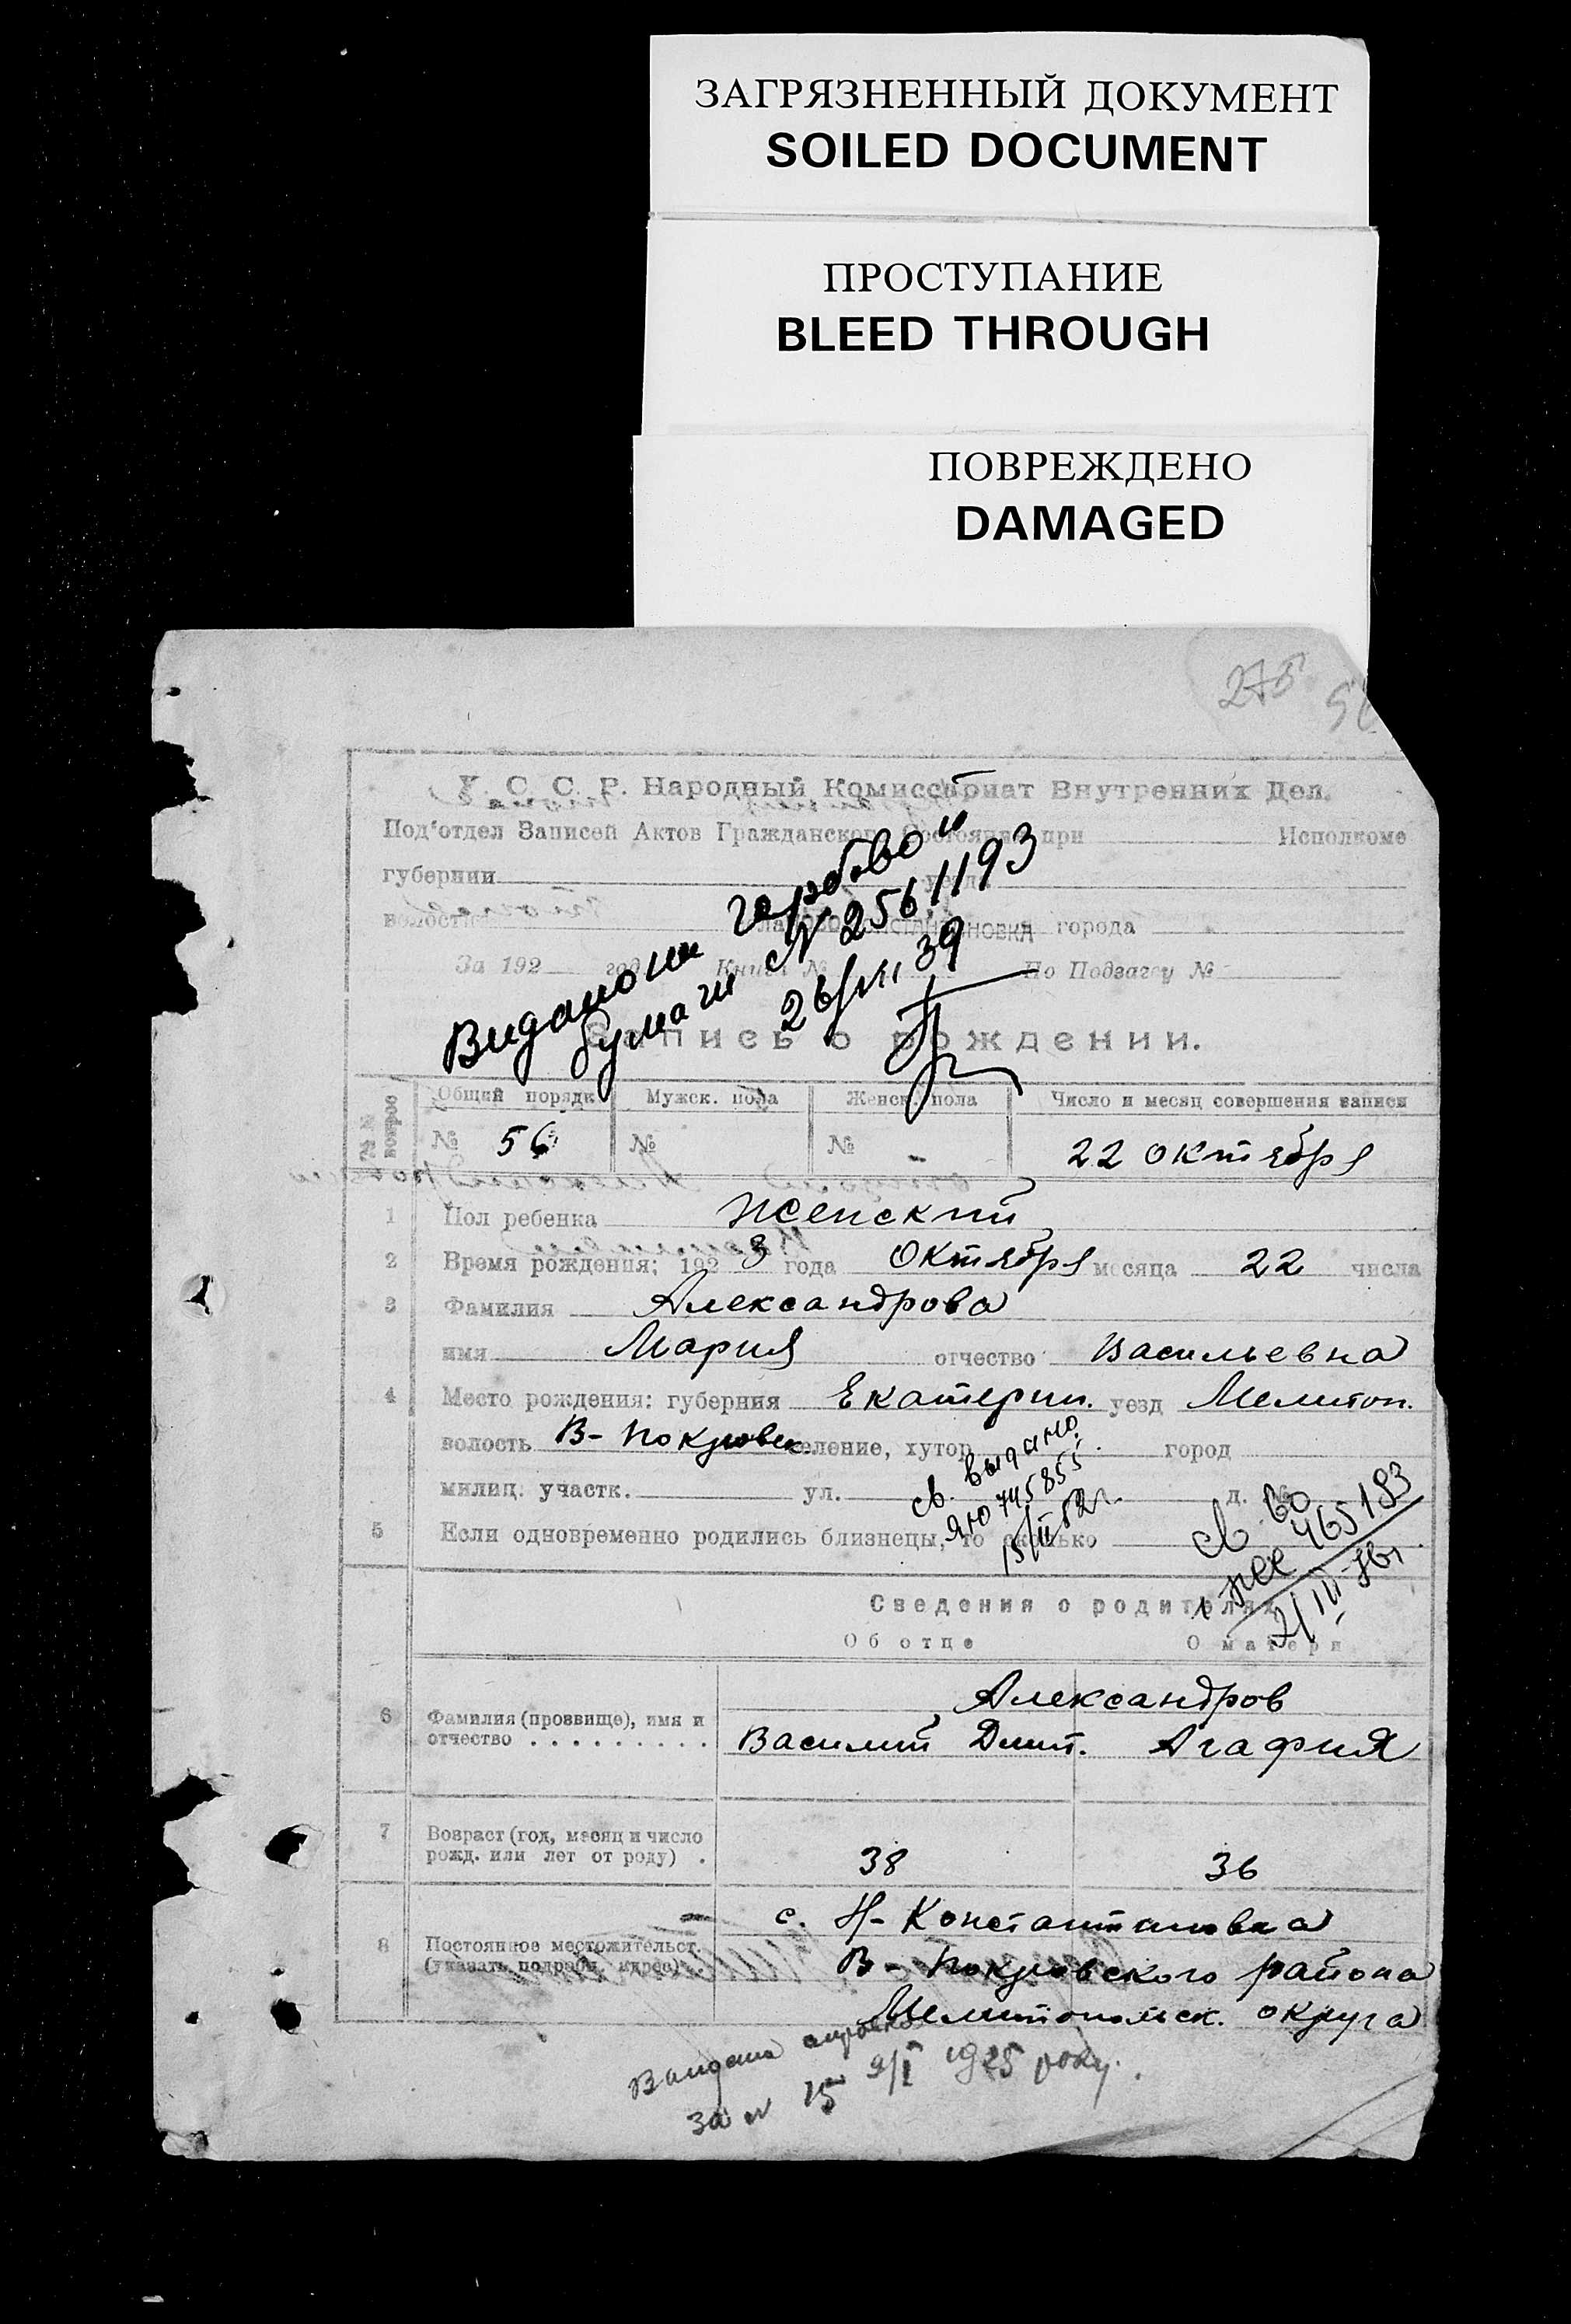 ЗАГРЯЗНЕННЫЙ ДОКУМЕНТ
SOILED DOCUMENT
ПРОСТУПАНИЕ
BLEED THROUGH
ПОВРЕЖДЕНО
DAMAGED
275
У. С. С. Р. Народный Комиссариат Внутренних Дел.
Под'отдел Записей Актов Гражданского Состояния при Исполкоме
губернии уезда
волости города
За 192 год Книга № По Подзагсу №
N 2561193
26/VII 39
Запись о рождении.
№№ вопрос
Общий порядк Мужск. пола Женск. пола Число и месяц совершения записи
№ 56 № № 22 октября
1 Пол ребенка женский
2 Время рождения: 1923 года Октября месяца 22 числа
3 Фамилия Александрова
имя Мария отчество Васильевна
4 Место рождения: губерния Екатерин. уезд Мелитоп.
волость В-Покровск. селение, хутор город
милиц. участк. ул. д. №
св. выдано
ЯЮ 745855
15/II 52 г.
5 Если одновременно родились близнецы, то сколько
465193
Сведения о родителях
Об отце О матери
Александров
6 Фамилия (прозвище), имя и
отчество . . . . . . . . . Василий Дмит. Агафия
7 Возраст (год, месяц и число
рожд. или лет от роду) . 38 36
с. Н-Константиновка
8 Постоянное местожительст.
(указать подробн. адрес) . В-Покровского района
Мелитопольск. округа
за N 15 9/I 1925 року.